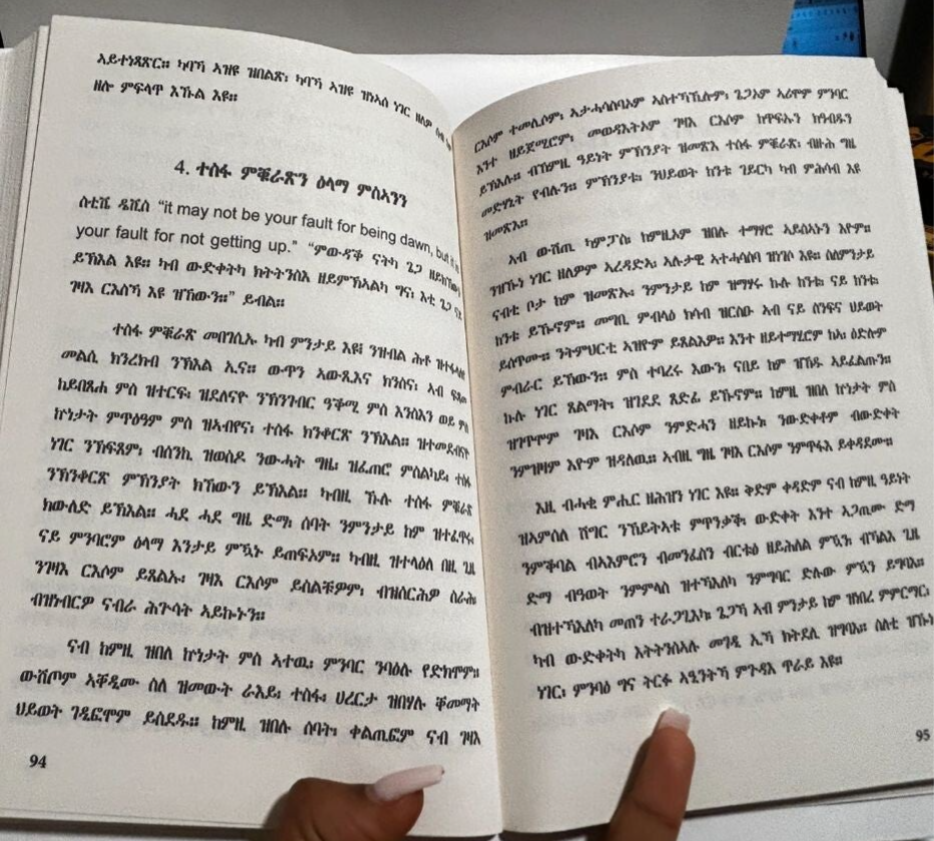 ኣይተነጻጽር። ካባኻ ኣዝዩ ዝበልጽ፣ ካባኻ ኣዝዩ ዝኑኣስ ነገር ዘለም
ዘሎ ምፍላጥ እኹል እዩ።
4. ተስፋ ምቑራጽን ዕላማ ምስኣንን
ስቲቪ ዴቪስ “it may not be your fault for being dawn, but it is
your fault for not getting up.” “ምውዳቕ ናትካ ጌጋ ዘይክኸውን
ይኽእል እዩ። ካብ ውድቀትካ ክትትንስእ ዘይምኽኣልካ ግና፣ እቲ ጌጋ ናይ
ገዛእ ርእስኻ እዩ ዝኸውን።” ይብል።
ተስፋ ምቑራጽ መበገሲኡ ካብ ምንታይ እዩ፧ ንዝብል ሕቶ ዝተፈላለየ
መልሲ ክንረክብ ንኽእል ኢና። ውጥን ኣውጺእና ክንሰና፣ ኣብ ፍጻመ
ከይበጽሐ ምስ ዝተርፍ፣ ዝደለናዮ ንኽንገብር ዓቕሚ ምስ እንስእን ወይ ምስ
ኩነታት ምጥዕዓም ምስ ዝኣብየና፣ ተስፋ ክንቆርጽ ንኽእል። ዝተመደብናዮ
ነገር ንኽፍጸም፣ ብሰንኪ ዝወስዶ ንውሓት ግዜ፣ ዝፈጠሮ ምስልካይ፣ ተስፋ
ንኽንቆርጽ ምኽንያት ክኸውን ይኽእል። ካብዚ ኹሉ ተስፋ ምቑራጽ
ክውለድ ይኽእል። ሓደ ሓደ ግዜ ድማ፣ ሰባት ንምንታይ ከም ዝተፈጥሩ፣
ናይ ምንባሮም ዕላማ እንታይ ምዃኑ ይጠፍኦም። ካብዚ ዝተላዕለ በዚ ጊዜ
ንገዛእ ርእሶም ይጸልኡ፣ ገዛእ ርእሶም ይስልቹዎም፣ ብዝሰርሕዎ ስራሕ፣
ብዝነብርዎ ናብራ ሕጉሳት ኣይኮኑን።
ናብ ከምዚ ዝበለ ኩነታት ምስ ኣተዉ፣ ምንባር ንባዕሉ የድክሞም።
ውሽጦም ኣቐዲሙ ስለ ዝመውት ራእይ፣ ተስፋ፣ ሀረርታ ዝበሃሉ ቐመማት
ህይወት ገዲፎሞም ይስደዱ። ከምዚ ዝበሉ ሰባት፣ ቀልጢፎም ናብ ገዛእ
94
ርእሶም ተመሊሶም፣ ኣታሓሳስባኦም ኣስተኻኺሎም፣ ጌጋኦም ኣሪሞም ምንባር
እንተ ዘይጀሚሮም፣ መወዳእትኦም ገዛእ ርእሶም ክቀትሉን ክዓብዱን
ይኽእሉ። ብኸምዚ ዓይነት ምኽንያት ዝመጽእ ተስፋ ምቑራጽ፣ ብዙሕ ግዜ
መድሃኒት የብሉን። ምኽንያቱ፣ ንህይወት ከንቱ ገይርካ ካብ ምሕሳብ እዩ
ዝመጽእ።
ኣብ ውሽጢ ካምፓስ፣ ከምዚኦም ዝበሉ ተማሃሮ ኣይስኣኑን እዮም።
ንዝኾነ ነገር ዘለዎም ኣረዳድኣ፣ ኣሉታዊ ኣተሓሳስባ ዝነገሶ እዩ። ስለምንታይ
ናብቲ ቦታ ከም ዝመጽኡ፣ ንምንታይ ከም ዝማሃሩ ኩሉ ከንቱ፣ ናይ ከንቱ፣
ከንቱ ይኾኖም። መግቢ ምብላዕ ክሳብ ዝርስዑ ኣብ ናይ ስንፍና ህይወት
ይሰጥሙ። ንትምህርቲ ኣዝዮም ይጸልእዎ። እንተ ዘይተማሂሮም ከኣ፣ ዕድሎም
ምብራር ይኸውን። ምስ ተባረሩ እውን፣ ናበይ ከም ዝኸዱ ኣይፈልጡን።
ኩሉ ነገር ጸልማት፣ ዝገደደ ጸድፊ ይኾኖም። ከምዚ ዝበለ ኩነታት ምስ
ዝገጥሞም ገዛእ ርእሶም ንምድሓን ዘይኮኑ ንውድቀቶም ብውድቀት
ንምግዛም እዮም ዝዳለዉ። ኣብዚ ግዜ ገዛእ ርእሶም ንምጥፋእ ይቀዳደሙ።
እዚ ብሓቂ ምሒር ዘሕዝን ነገር እዩ። ቅድም ቀዳድም ናብ ከምዚ ዓይነት
ዝኣመሰለ ሽግር ንኸይትኣቱ ምጥንቃቕ፣ ውድቀት እንተ ኣጋጢሙ ድማ
ንምቕባል ብኣእምሮን ብመንፈስን ብርቱዕ ዘይሕለል ምዃን፣ ብኻልእ ጊዜ
ድማ ብዓወት ንምምላስ ዝተኻእለካ ንምግባር ድሉው ምዃን ይግባእ።
ብዝተኻእለካ መጠን ተራጋጊእካ፣ ጌጋኻ ኣብ ምንታይ ከም ዝነበረ ምምርማር፣
ካብ ውድቀትካ እትትንስኣሉ መገዲ ኢኻ ክትደሊ ዝግባእ። ስለቲ ዝኾነ
ነገር፣ ምንባዕ ግና ትርፉ ኣዒንትኻ ምጉዳእ ጥራይ እዩ።
95